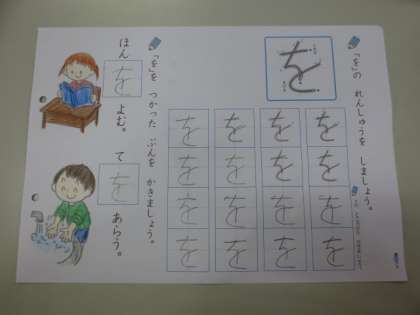 「を」の れんしゅうを しましょう。
を
を を を を
を を を を
を を を を
を を を を
「を」を つかった ぶんを かきましょう。
ほんを よむ。
てを あらう。